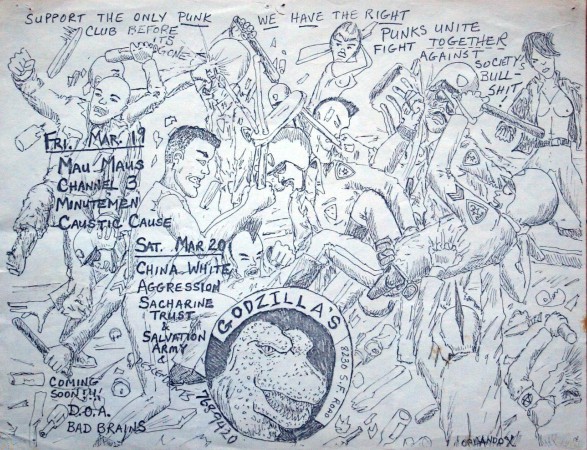 SUPPORT THE ONLY PUNK
CLUB BEFORE
ITS
GONE!
WE HAVE THE RIGHT
PUNKS UNITE
FIGHT TOGETHER
AGAINST
SOCIETY'S
BULL-
SHIT!
FRI. MAR. 19
MAU MAUS
CHANNEL 3
MINUTEMEN
CAUSTIC CAUSE
SAT. MAR 20
CHINA WHITE
AGGRESSION
SACHARINE
TRUST
&
SALVATION
ARMY
GODZILLA'S
8230
ROAD
768-7420
COMING
SOON!!!
D.O.A.
BAD BRAINS